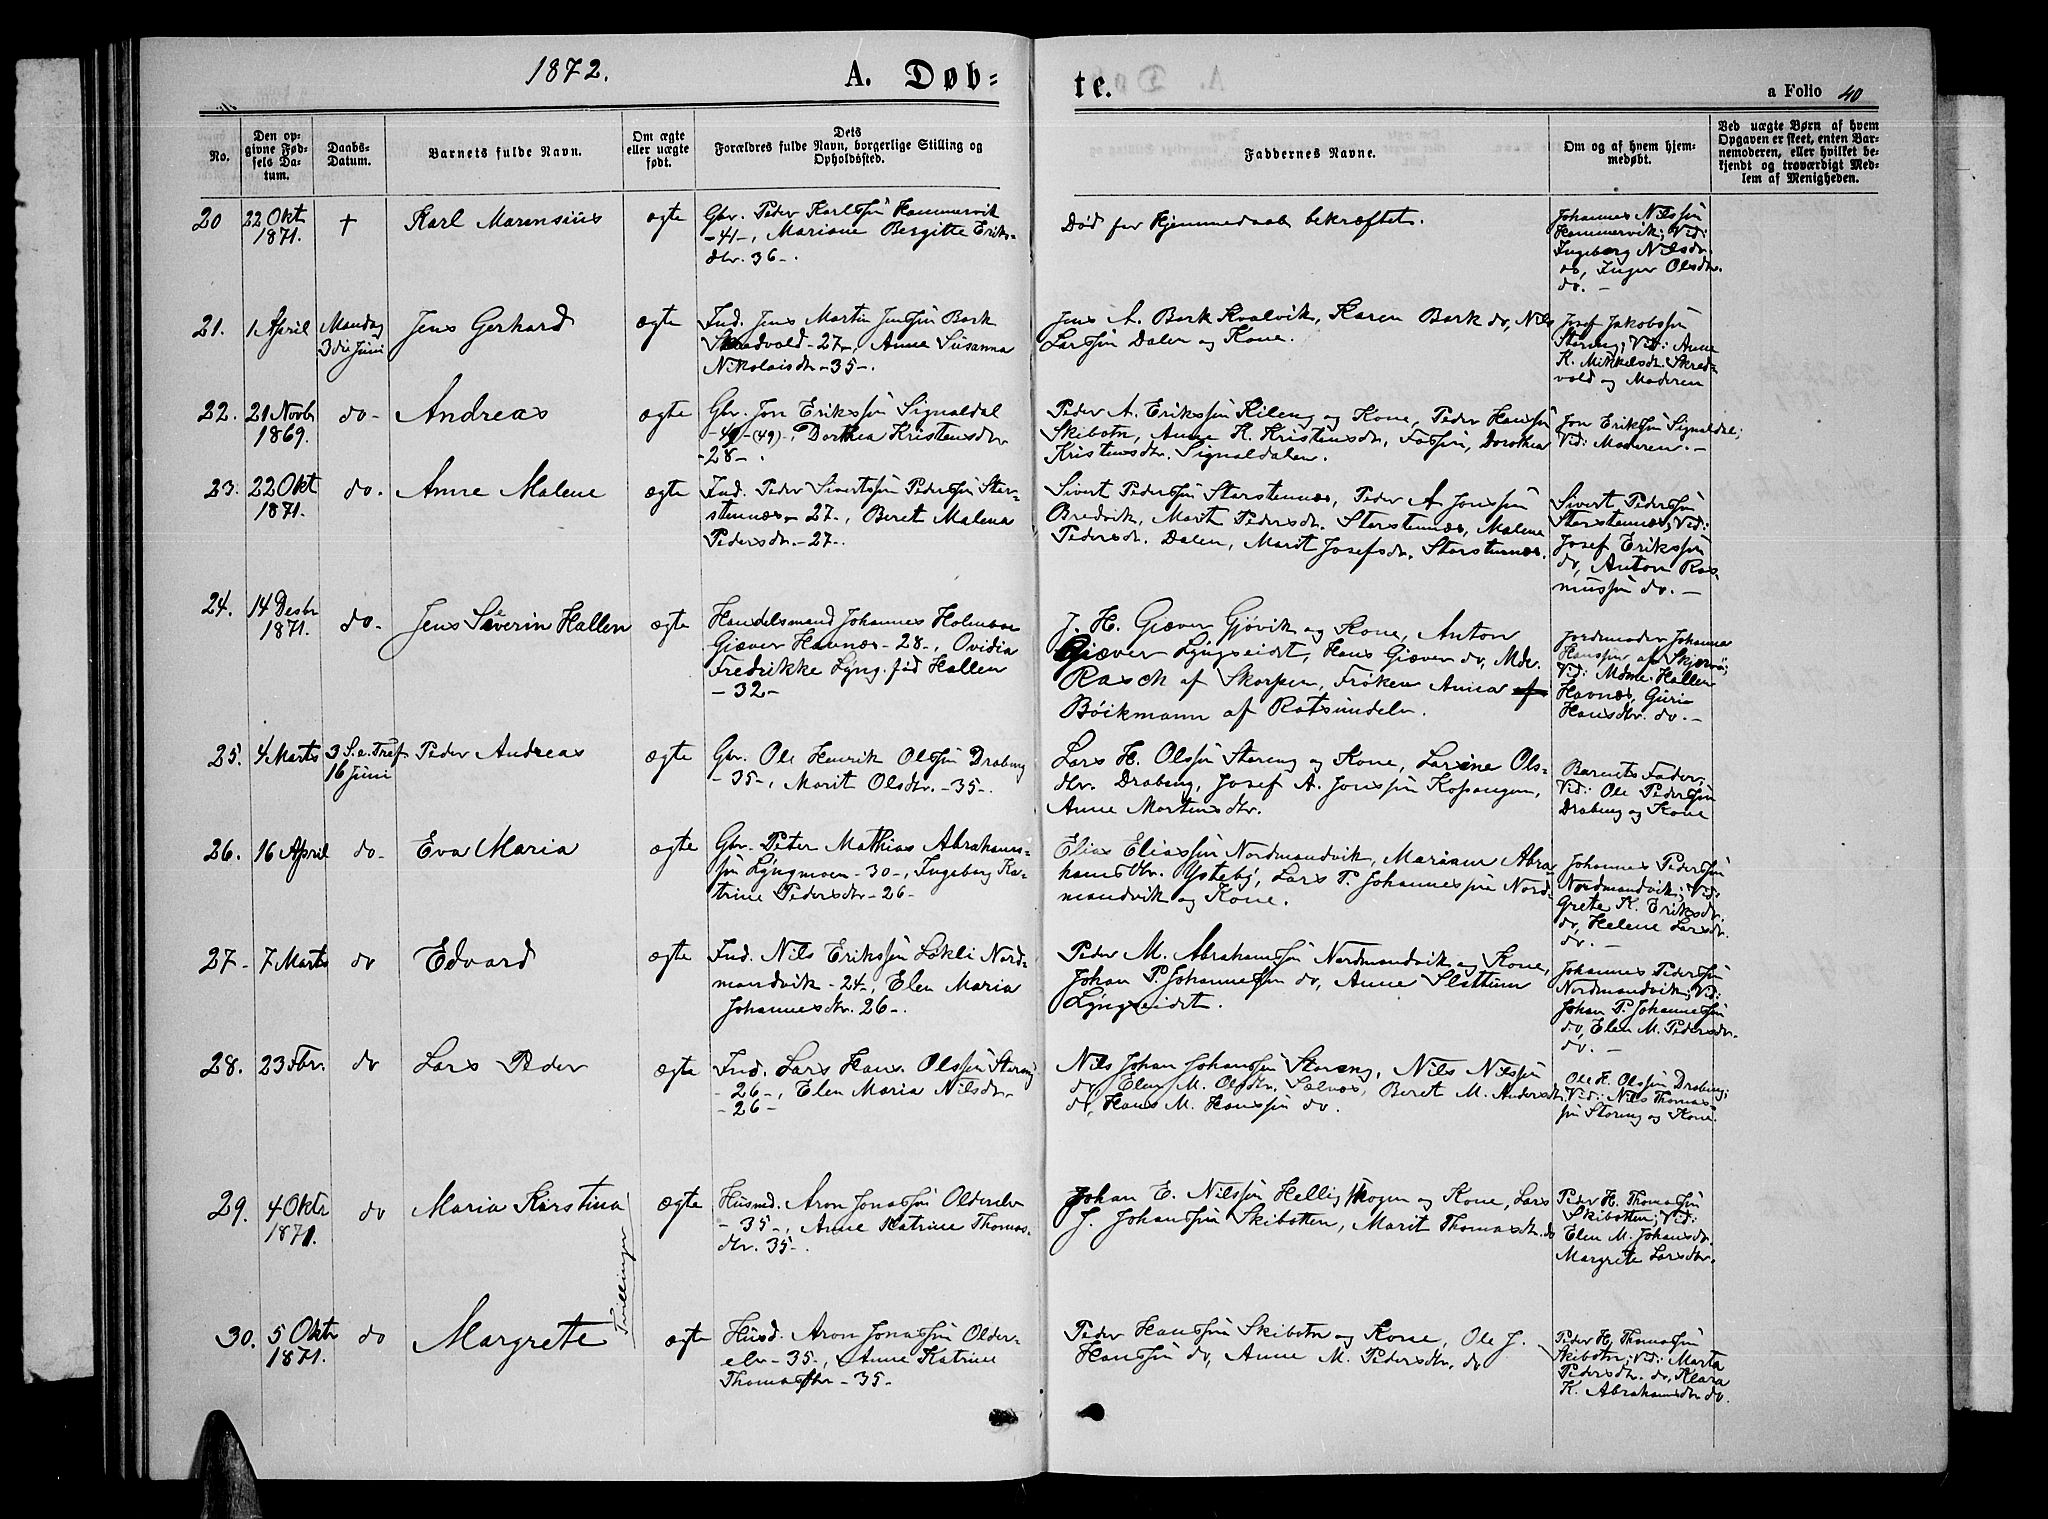 1872.
A. Døb=
te.
a Folio 40
No.
Den op=
givne Fød=
sels Da=
tum.
Daabs=
Datum.
Barnets fulde Navn.
Om ægte
eller uægte
født.
Dets
Forældres fulde Navn, borgerlige Stilling og
Opholdssted.
Faddernes Navne.
Om og af hvem hjem=
medøbt.
Ved uægte Børn af hvem
Opgaven er skeet, enten Bar=
nemoderen, eller hvilket be=
kjendt og troværdigt Med=
lem af Menigheden.
20
22 Okt
1871.
†
Karl Marensius
ægte
Gbr. Peder Karlssøn Hammervik
-41-, Mariane Bergitte Eriks-
dtr. 36-.
Død før Hjemmedaab bekræftet.
Johannes Nilssøn
Hammervik; Vid:
Ingeborg Nilsdtr.
do, Inger Olsdtr.
do. -
21.
1 April
Mandag
3die Juni
Jens Gerhard
ægte
Ind. Jens Martin Jenssøn Bark
Skradvold -27-, Anne Susanna
Nikolaisdtr -35-.
Jens A. Bark Kvalvik, Karen Bark do, Nils
Larssøn Dalen og Kone.
Josef Jakobssøn
Storeng; Vid: Anne
K. Mikkelsdtr. Skrad-
vold og Moderen
22.
21 Novbr
1869.
do-
Andreas
ægte
Gbr. Jon Erikssøn Signaldal
-49-(49)-, Dorthea Kristensdtr
-28-.
Peder A. Erikssøn Kileng og Kone, Peder Hanssøn
Skibotn, Anne K. Kristensdtr. Fossen, Dorothea
Kristensdtr. Signaldalen.
Jon Erikssøn Signaldal;
Vid: Moderen. -
23.
22 Okt
1871.
do.
Anne Malene
ægte
Ind. Peder Sivertssøn Pederssøn Stor-
stennæs -27-, Beret Malena
Pedersdtr -27-.
Sivert Pederssøn Storstennæs, Peder A. Jonssøn
Bredvik, Marit Pedersdtr. Storstennæs, Malene
Pedersdtr. Dalen, Marit Josefsdtr. Storstennæs.
Sivert Pederssøn
Storstennæs; Vid:
Josef Erikssøn
do, Anton Ras-
mussøn do. -
24.
14 Desbr
1871.
do-
Jens Severin Hallen
ægte
Handelsmand Johannes Holmboe
Giæver Havnæs -28-, Ovidia
Fredrikke Lyng. fød Hallen
-32-
J. H. Giæver Gjøvik og Kone, Anton
Giæver Lyngseidet, Hans Giæver do, Mdm.
Rasch af Skorpen, Frøken Anna af
Bøckmann af Rotsundelv.
Jordmoder Johanna
Hanssen af Skjærvø;
Vid: Mdme. Hallen
Havnæs, Guria
Hansdtr. do. -
25.
4 Marts
3 S. e. Tref
16 Juni
Peder Andreas
ægte
Gbr. Ole Henrik Olssøn Drabeng
-35-, Marit Olsdtr. -35-.
Lars H. Olssøn Storeng og Kone, Larsine Ols-
dtr. Drabeng, Josef A. Jonssøn Kopangen,
Anne Mortensdtr.
Barnets Fader;
Vid: Ole Pederssøn
Drabeng og Kone
26.
16 April
do-
Eva Maria
ægte
Gbr. Peter Mathias Abrahams-
søn Lyngmoen -30-, Ingeborg Ka-
trine Pedersdtr -26-
Elias Eliassøn Nordmandvik, Mariann Abra
hamsdtr. Ystebÿ, Lars P. Johannessøn Nord-
mandvik og Kone.
Johannes Pederssøn
Nordmandvik; Vid:
Grete K. Eriksdtr.
do, Helene Larsdtr.
do. -
27-
7 Marts
do
Edvard
ægte
Ind. Nils Erikssøn Løkli Nord-
mandvik -24-, Elen Maria
Johannesdtr. 26-.
Peder M. Abrahamssøn Nordmandvik og Kone,
Johan P. Johannessøn do, Anne Slettum
Lyngseidet.
Johannes Pederssøn
Nordmandvik; Vid:
Johan P. Johannessøn
do, Elen M. Pedersdtr.
do. -
28.
23 Fbr.
do
Lars Peder
ægte
Ind. Lars Hans. Olssøn Storeng
-26-, Elen Maria Nilsdtr.
-26-
Nils Johan Johanssøn Storeng, Nils Nilssøn
do, Elen M. Olsdtr. Solnæs, Beret M. Andersdtr.
do, Hans M. Hanssøn do.
Ole H. Olssøn Drabeng;
Vid: Nils Thomas-
søn Storeng og Kone.
29.
4 Oktr
1871.
do
Maria Kirstina
Tvillinger
ægte
Husmd. Aron Jonassøn Olderelv
-35-, Anne Katrine Thomas-
dtr. 35-.
Johan E. Nilssøn Helligskogen og Kone, Lars
J. Johanssøn Skibotten, Marit Thomasdtr. do
Peder H. Thomassøn
Skibotten; Vid:
Elen M. Johansdtr.
Margrete Larsdtr.
30.
5 Oktr
1871.
do
Margrete
ægte
Husmd. Aron Jonassøn Older-
elv -35-, Anne Katrine
Thomasdtr -35-
Peder Hanssøn Skibotn og Kone, Ole J.
Hanssøn do, Anne M. Pedersdtr. do
Peder H. Thomassøn
Skibotn; Vid: Marta
Pedersdtr. do, Klara
K. Abrahamsdtr do.